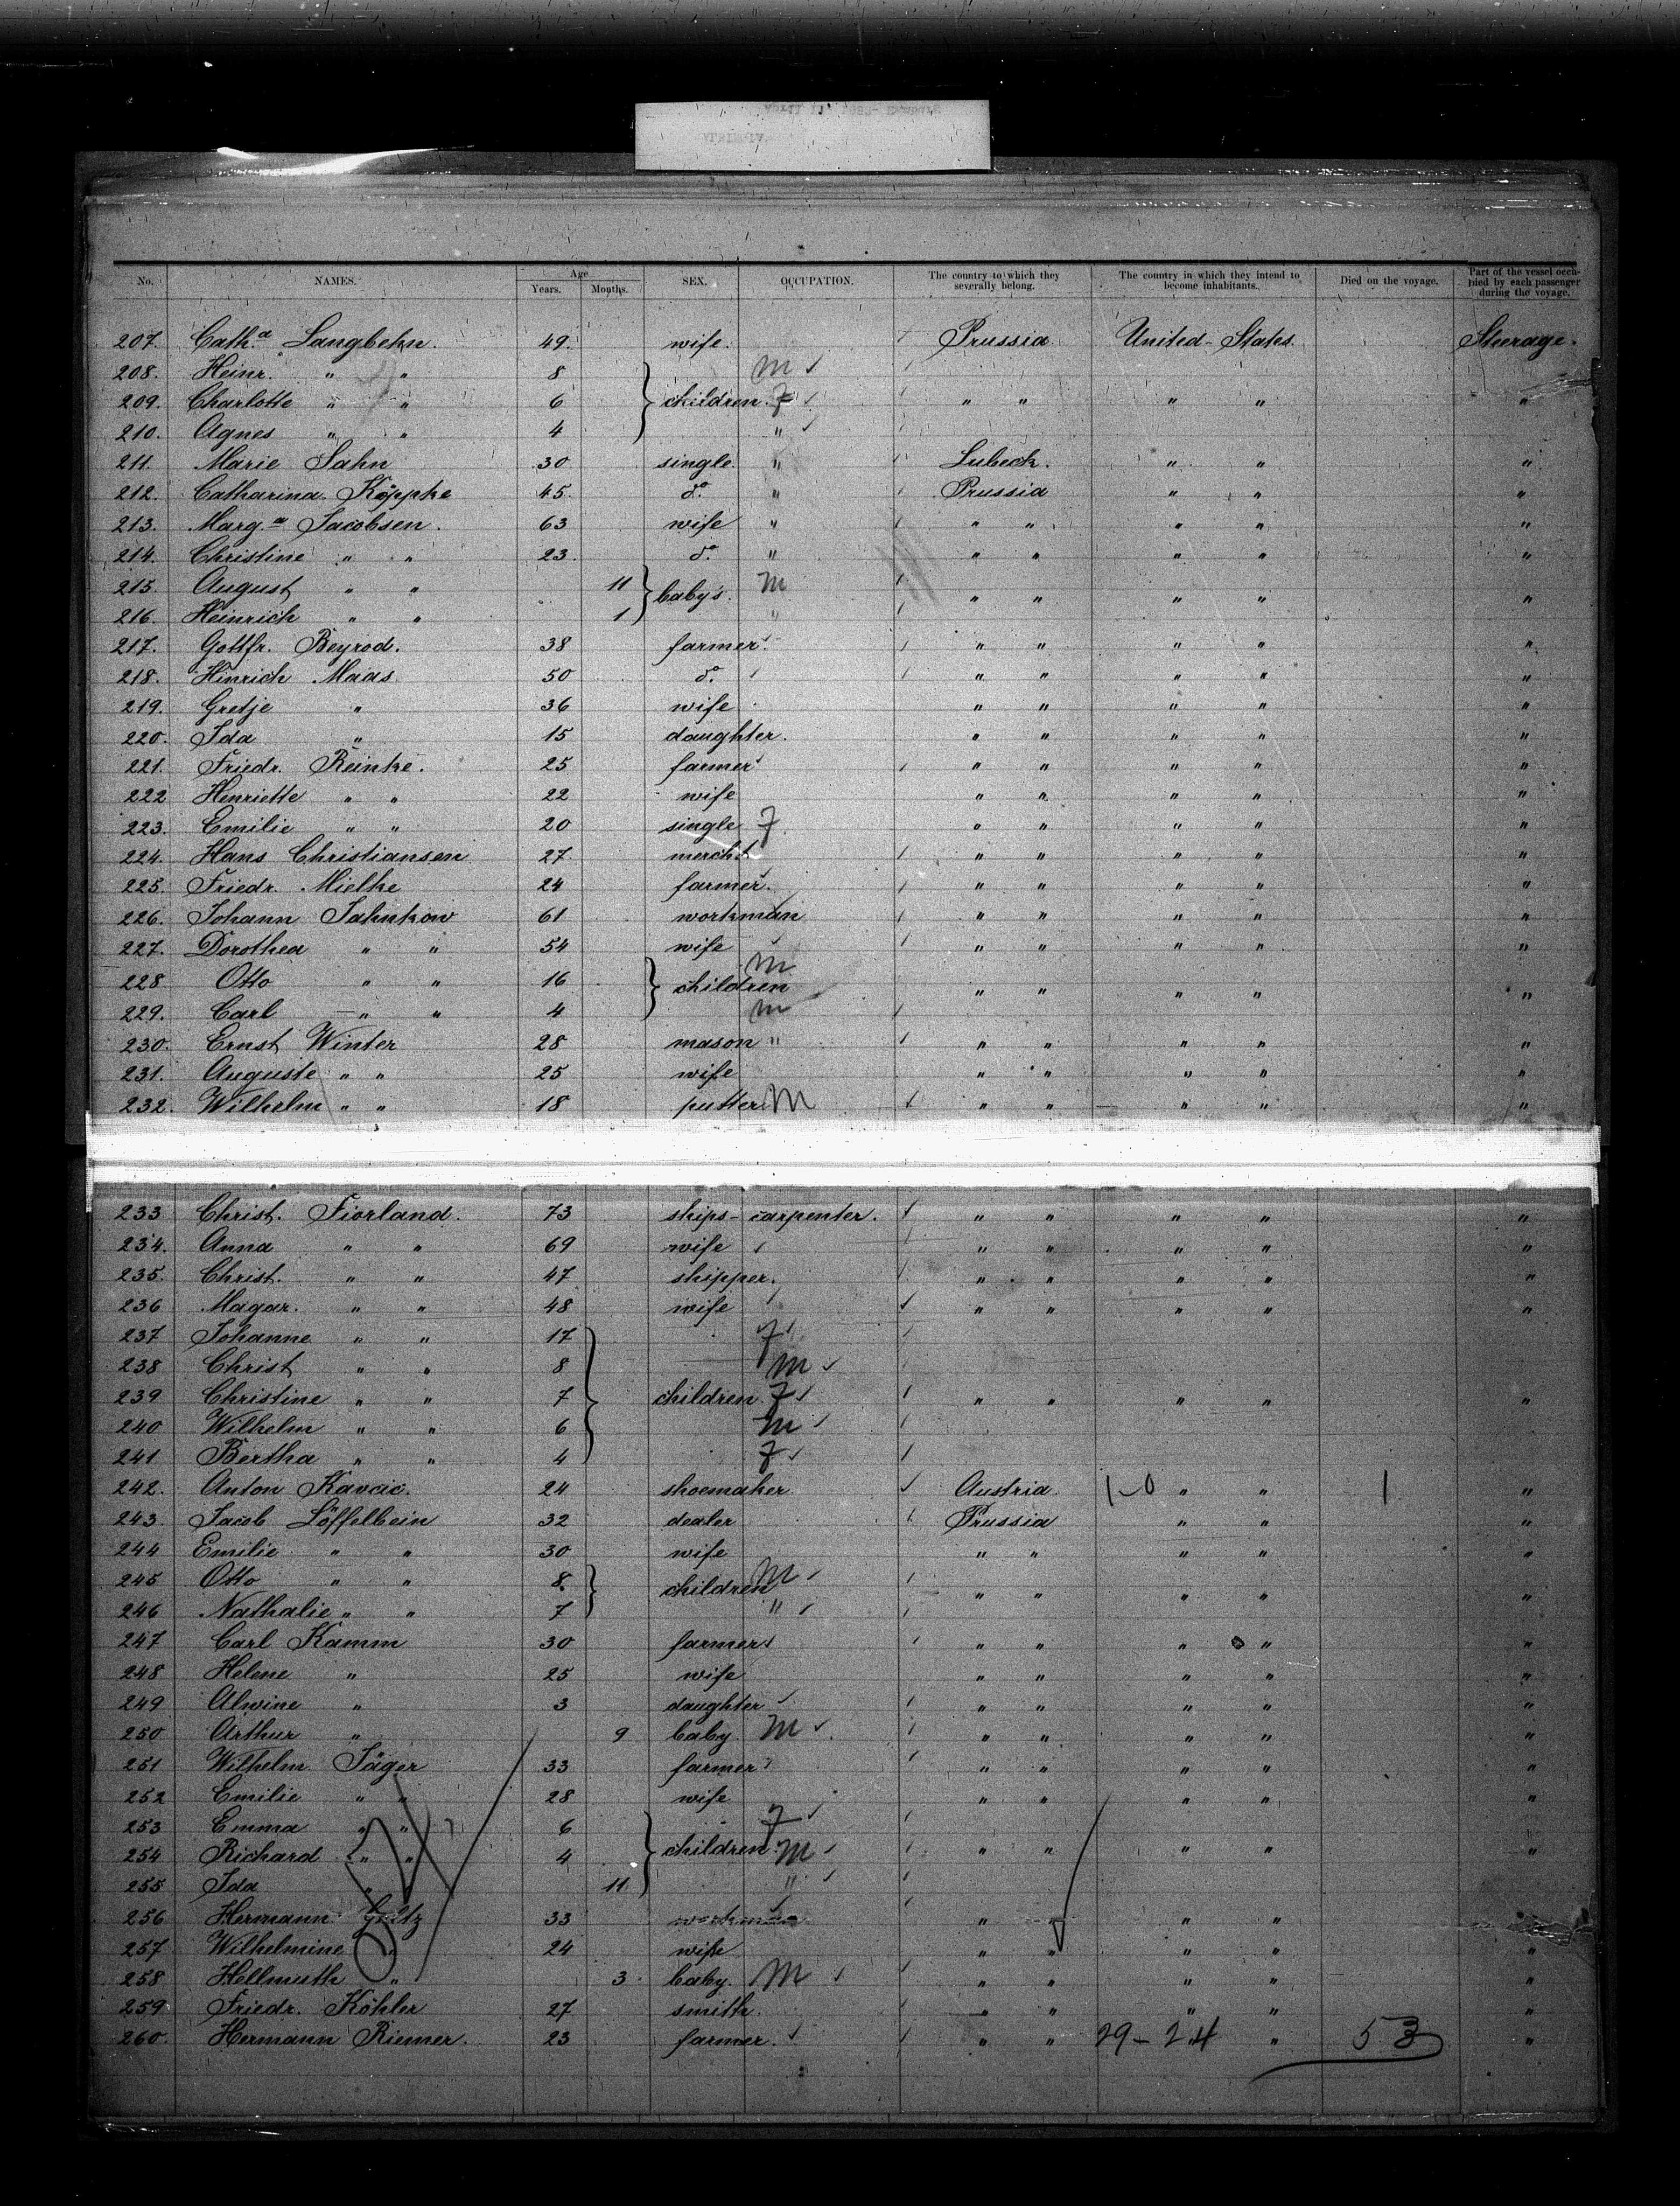 No. NAMES. Age Years. Months. SEX. OCCUPATION. The country to which they severally belong. The country in which they intend to become inhabitants. Died on the voyage. Part of the vessel occupied by each passenger during the voyage.
207. Cath.a Langbehn. 49. wife. Prussia United-States. Steerage.
208. Heinr. " " 8 M
209. Charlotte " " 6 children. F " " " " "
210. Agnes " " 4 "
211. Marie Jahn 30 single. " Lubeck. " " "
212. Catharina Köppke 45. do. " Prussia " " "
213. Marg.a Jacobsen. 63 wife " " " " " "
214. Christine " " 23. do. " " " " " "
215. August " " 11 M
baby's. " " " " "
216. Heinrich " " 1 "
217. Gottfr. Beyrod. 38 farmer. " " " " "
218. Hinrich Maas 50 do. " " " " "
219. Gretje " 36 wife " " " " "
220. Ida " 15 daughter. " " " " "
221. Friedr. Reinke. 25 farmer " " " " "
222 Henriette " " 22 wife " " " " "
223. Emilie " " 20 single F " " " " "
224. Hans Christiansen 27. mercht " " " " "
225. Friedr. Mielke 24 farmer. " " " " "
226. Johann Jahnkow 61 workman " " " " "
227. Dorothea " " 54 wife " " " " "
228 Otto " " 16 M
children " " " " "
229. Carl " " 4 M
230. Ernst Winter 28 mason " " " " " "
231. Auguste " " 25 wife " " " " "
232. Wilhelm " " 18 putter M " " " " "
233 Christ. Fiorland. 73 ships-carpenter. " " " " "
234. Anna " " 69 wife " " " " "
235. Christ. " " 47 shipper. " " " " "
236 Magar. " " 48 wife " " " " "
237 Johanne " " 17 F
238 Christ " " 8 M
239 Christine " " 7 children F " " " " "
240 Wilhelm " " 6 M
241 Bertha " " 4 F
242. Anton Kavcic. 24 shoemaker. Austria. 1-0 " " 1 "
243. Jacob Löffelbein 32 dealer Prussia " " "
244 Emilie " " 30 wife " " " " "
245 Otto " " 8. M
children " " " " "
246 Nathalie " " 7 "
247 Carl Kamm 30 farmer " " " " "
248 Helene " 25 wife " " " " "
249 Alwine " 3 daughter " " " " "
250 Arthur " 9 baby. M " " " " "
251 Wilhelm Jäger 33 farmer " " " " "
252 Emilie " " 28 wife " " " " "
253 Emma " " 6 F
254 Richard " " 4 children. M " " " " "
255 Ida " 11 "
256 Hermann 33 workman " " " " "
257 Wilhelmine " 24 wife " " " " "
258 Hellmuth " 3. baby. M " " " " "
259 Friedr. Köhler 27 smith. " " " " "
260. Hermann Riemer. 23 farmer. " " 29-24 " 53 "